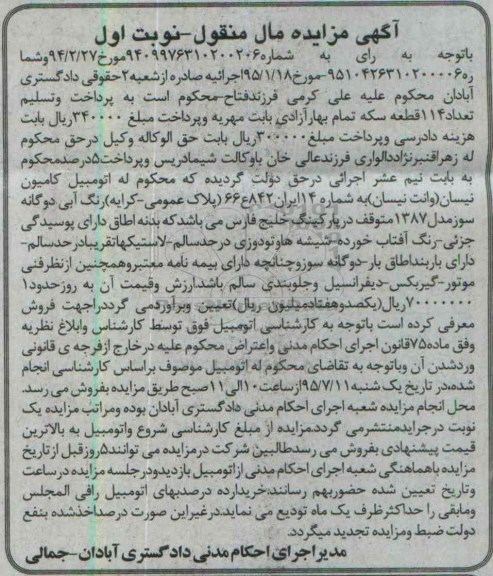 آگهی مزایده مال منقول-نوبت اول
باتوجه به رای به شماره۹۴۰۹۹۷۶۳۱۰۲۰۰۲۰۶مورخ۹۴/۲/۲۷وشما
ره۹۵۱۰۴۲۶۳۱۰۲۰۰۰۰۶-مورخ۹۵/۱/۱۸اجرائیه صادره ازشعبه۲حقوقی دادگستری
آبادان محکوم علیه علی کرمی فرزندفتاح-محکوم است به پرداخت وتسلیم
تعداد۱۱۴قطعه سکه تمام بهارآزادی بابت مهریه وپرداخت مبلغ ۳۴۰۰۰۰ریال بابت
هزینه دادرسی وپرداخت مبلغ۳۰۰۰۰۰ریال بابت حق الوکاله وکیل درحق محکوم
له زهراقنبرنژاددالواری فرزندعالی خان باوکالت شیمادریس وپرداخت۵درصدمحکوم
به بابت نیم عشر اجرائی درحق دولت گردیده که محکوم له اتومبیل کامیون
نیسان(وانت نیسان)به شماره ۱۴ایران۸۴۲ع۶۶ (پلاک عمومی-کرایه)رنگ آبی دوگانه
سوزمدل۱۳۸۷متوقف درپارکینگ خلیج فارس می باشدکه بدنه اطاق دارای پوسیدگی
جزئی-رنگ آفتاب خورده-شیشه هاوتودوزی درحدسالم-لاستیکهاتقریبادرحدسالم-
دارای باربنداطاق بار-دوگانه سوزوچنانچه دارای بیمه نامه معتبروهمچنین ازنظرفنی
موتور-گیربکس-دیفرانسیل وجلوبندی سالم باشدارزش وقیمت آن به روزحدود۱
۷۰۰۰۰۰۰۰ریال(یکصدوهفتادمیلیون ریال)تعیین وبرآوردمی گرددراجهت فروش
معرفی کرده است باتوجه به کارشناسی اتومبیل فوق توسط کارشناس وابلاغ نظریه
وفق ماده۷۵قانون اجرای احکام مدنی واعتراض محکوم علیه درخارج ازفرجه ی قانونی
وردشدن آن وباتوجه به تقاضای محکوم له اتومبیل موصوف براساس کارشناسی انجام
شده،در تاریخ یک شنبه۹۵/۷/۱۱ازساعت۱۰الی۱۱صبح طریق مزایده بفروش می رسد.
محل انجام مزایده شعبه اجرای احکام مدنی دادگستری آبادان بوده ومراتب مزایده یک
نوبت درجرایدمنتشرمی گردد.مزایده از مبلغ کارشناسی شروع واتومبیل به بالاترین
قیمت پیشنهادی بفروش می رسدطالبین شرکت درمزایده می توانند۵روزقبل از تاریخ
مزایده باهماهنگی شعبه اجرای احکام مدنی ازاتومبیل بازدیدودرجلسه مزایده درساعت
وتاریخ تعیین شده حضوربهم رسانند،خریدارده درصدبهای اتومبیل رافی المجلس
ومابقی را حداکثرظرف یک ماه تودیع می نماید.درغیراین صورت درصداخذشده بنفع
دولت ضبط ومزایده تجدید میگردد.
مدیراجرای احکام مدنی دادگستری آبادان-جمالی